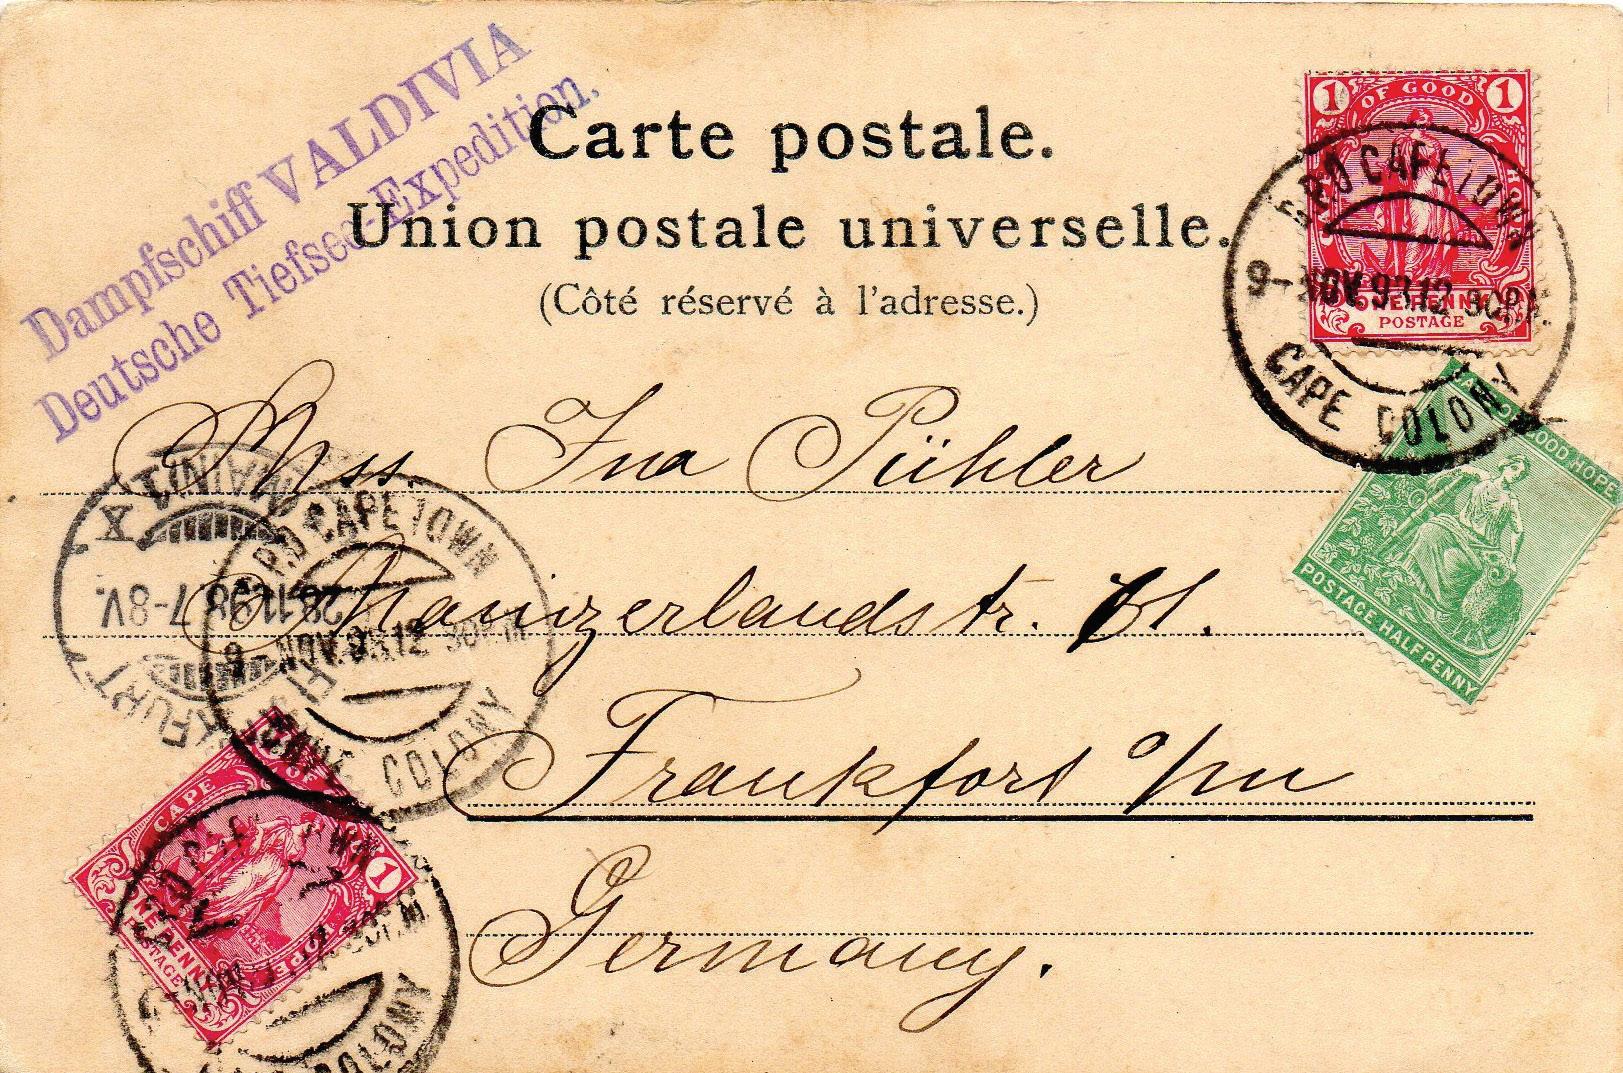 Dampfschiff VALDIVIA
Deutsche Tiefsee-Expedition.
Carte postale.
Union postale universelle.
(Côté réservé à l'adresse.)
1 OF GOOD 1
ONE PENNY
POSTAGE
G.P.O CAPE TOWN
9-NOV.98.12 30P.M.
CAPE COLONY
GOOD.HOPE
POSTAGE HALFPENNY
Mss. Ina Pühler
Mainzerlandstr.
Frankfort o/m
Germany.
X.
28.11.98.7-8V.
G.P.O CAPE TOWN
9-NOV.98.12 30P.M
CAPE COLONY
CAPE OF
1
ONE PENNY
POSTAGE
12 30P.M.
COLONY